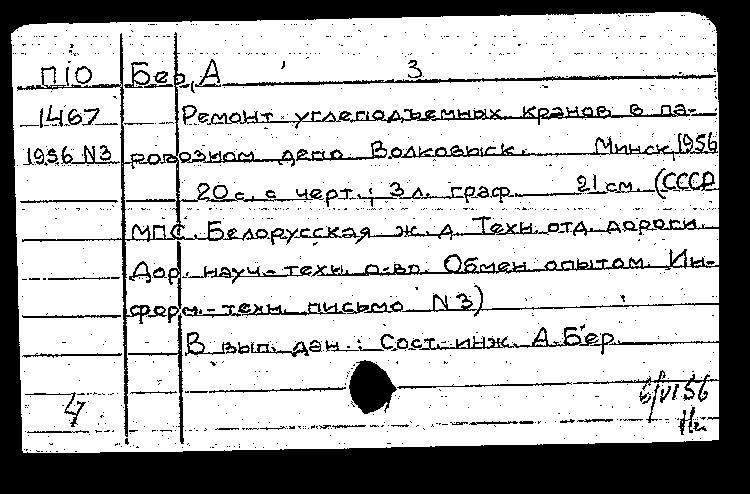 П10 Бер, А 3
1467 Ремонт углеподъемных кранов в па-
1956 N3 ровозном депо Волковыск. Минск, 1956
20 с. с черт.; 3 л. граф. 21 см. (СССР
МПС. Белорусская ж. д. Техн. отд. дороги.
Дор. науч.-техн. о-во. Обмен опытом. Ин-
форм.-техн. письмо N3)
В вып. дан.: Сост. инж. А. Бер.
6/VI 56